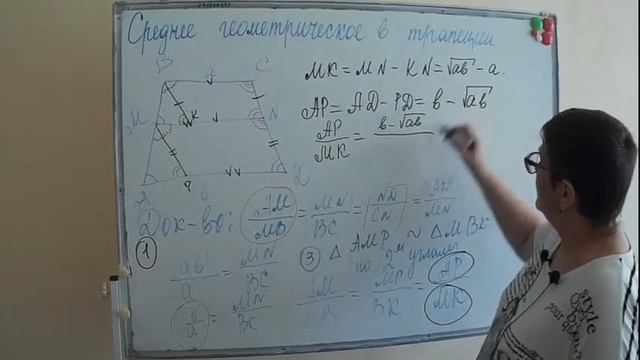 Среднее геометрическое в трапеции
B a C
M K N
A P в D
MK = MN - KN = √ab - a.
AP = AD - PD = b - √ab
AP/MK = b - √ab
Док-во: AM/MB = MN/BC = ND/CN = AD/MN
① ab/a = MN/BC
③ △AMP ~ △MBK
по 2м углам
AM/MB = MP/BK = AP/MK
MN/BC
style